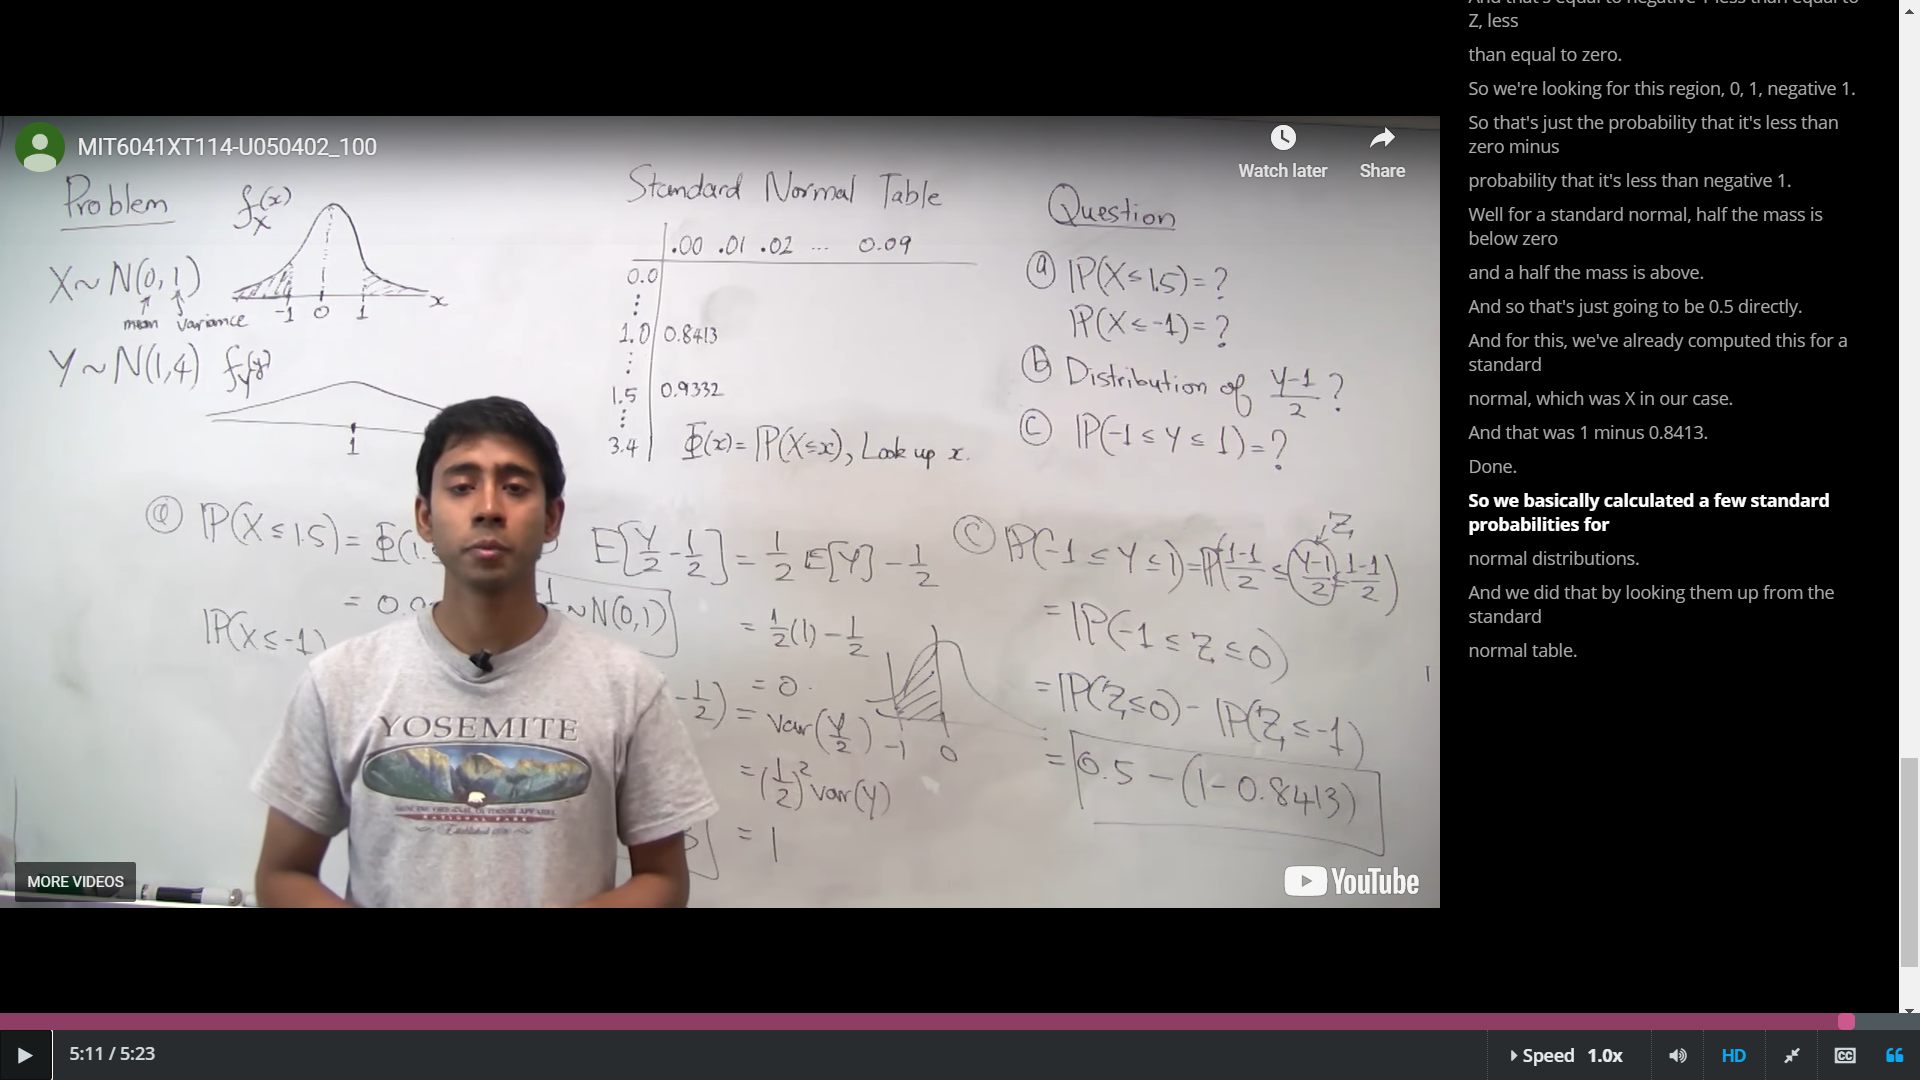 MIT6041XT114-U050402_100
Watch later
Share
Problem
f_X(x)
X ~ N(0, 1)
mean variance
-1 0 1 x
Y ~ N(1,4) f_Y(y)
1
Standard Normal Table
.00 .01 .02 ... 0.09
0.0
⋮
1.0 0.8413
⋮
1.5 0.9332
⋮
3.4
Φ(x) = P(X≤x), Look up x.
Question
(a) P(X≤1.5)=?
P(X≤-1)=?
(b) Distribution of (Y-1)/2 ?
(c) P(-1 ≤ Y ≤ 1)=?
(a) P(X≤1.5)= Φ(1.
= 0.
P(X≤-1)
~N(0,1)
E[Y/2 - 1/2] = 1/2 E[Y] - 1/2
= 1/2(1) - 1/2
= 0.
-1/2) = var(Y/2)
= (1/2)² var(Y)
= 1
-1 0
(c) P(-1 ≤ Y ≤ 1)=P(-1-1/2 ≤ (Y-1)/2 ≤ (1-1)/2)
Z
= P(-1 ≤ Z ≤ 0)
= P(Z≤0) - P(Z≤-1)
= 0.5 - (1-0.8413)
YOSEMITE
NATIONAL PARK
MORE VIDEOS
YouTube
And that's equal to negative 1 less than equal to
Z, less
than equal to zero.
So we're looking for this region, 0, 1, negative 1.
So that's just the probability that it's less than
zero minus
probability that it's less than negative 1.
Well for a standard normal, half the mass is
below zero
and a half the mass is above.
And so that's just going to be 0.5 directly.
And for this, we've already computed this for a
standard
normal, which was X in our case.
And that was 1 minus 0.8413.
Done.
So we basically calculated a few standard
probabilities for
normal distributions.
And we did that by looking them up from the
standard
normal table.
5:11 / 5:23
Speed 1.0x
HD
CC